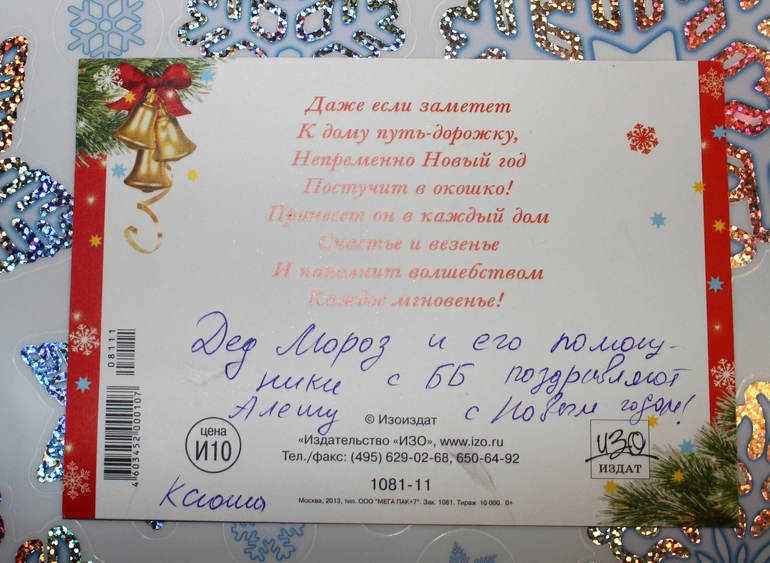 Даже если заметет
К дому путь-дорожку,
Непременно Новый год
Постучит в окошко!
Принесет он в каждый дом
Счастье и везенье
И наполнит волшебством
Каждое мгновенье!
Дед Мороз и его помощ-
ники с ББ поздравляют
Алешу с Новым годом!
Ксюша
08111
4 603452 000107
цена
И10
© Изоиздат
«Издательство «ИЗО», www.izo.ru
Тел./факс: (495) 629-02-68, 650-64-92
1081-11
Москва, 2013, тип. ООО "МЕГА ПАК+7". Зак. 1081. Тираж 10 000. 0+
ИЗО
ИЗДАТ